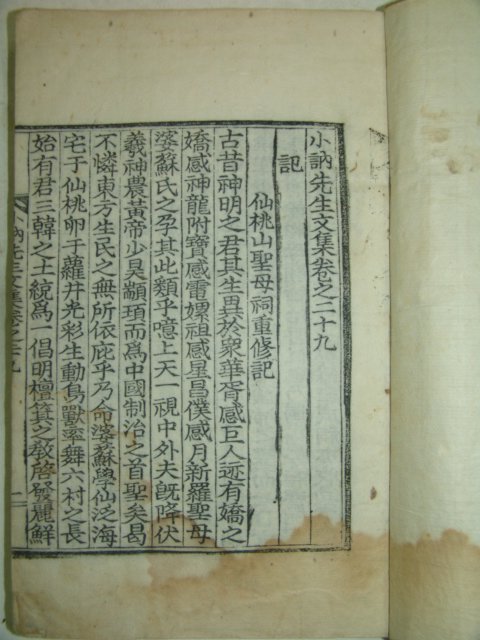 小訥先生文集卷之二十九
記
仙桃山聖母祠重修記
古昔神明之君其生異於衆華胥感巨人迹有嬌之
嬌感神龍附寶感電嫘祖感星昌僕感月新羅聖母
婆蘇氏之孕其此類乎噫上天一視中外夫旣降伏
羲神農黃帝少昊顓頊而爲中國制治之首聖矣曷
不憐東方生民之無所依庇乎乃命婆蘇學仙泛海
宅于仙桃卵于蘿井光彩生動鳥獸率舞六村之長
始有君三韓之土統爲一倡明檀箕之敎啓發麗鮮
小訥先生文集卷之二十九
一